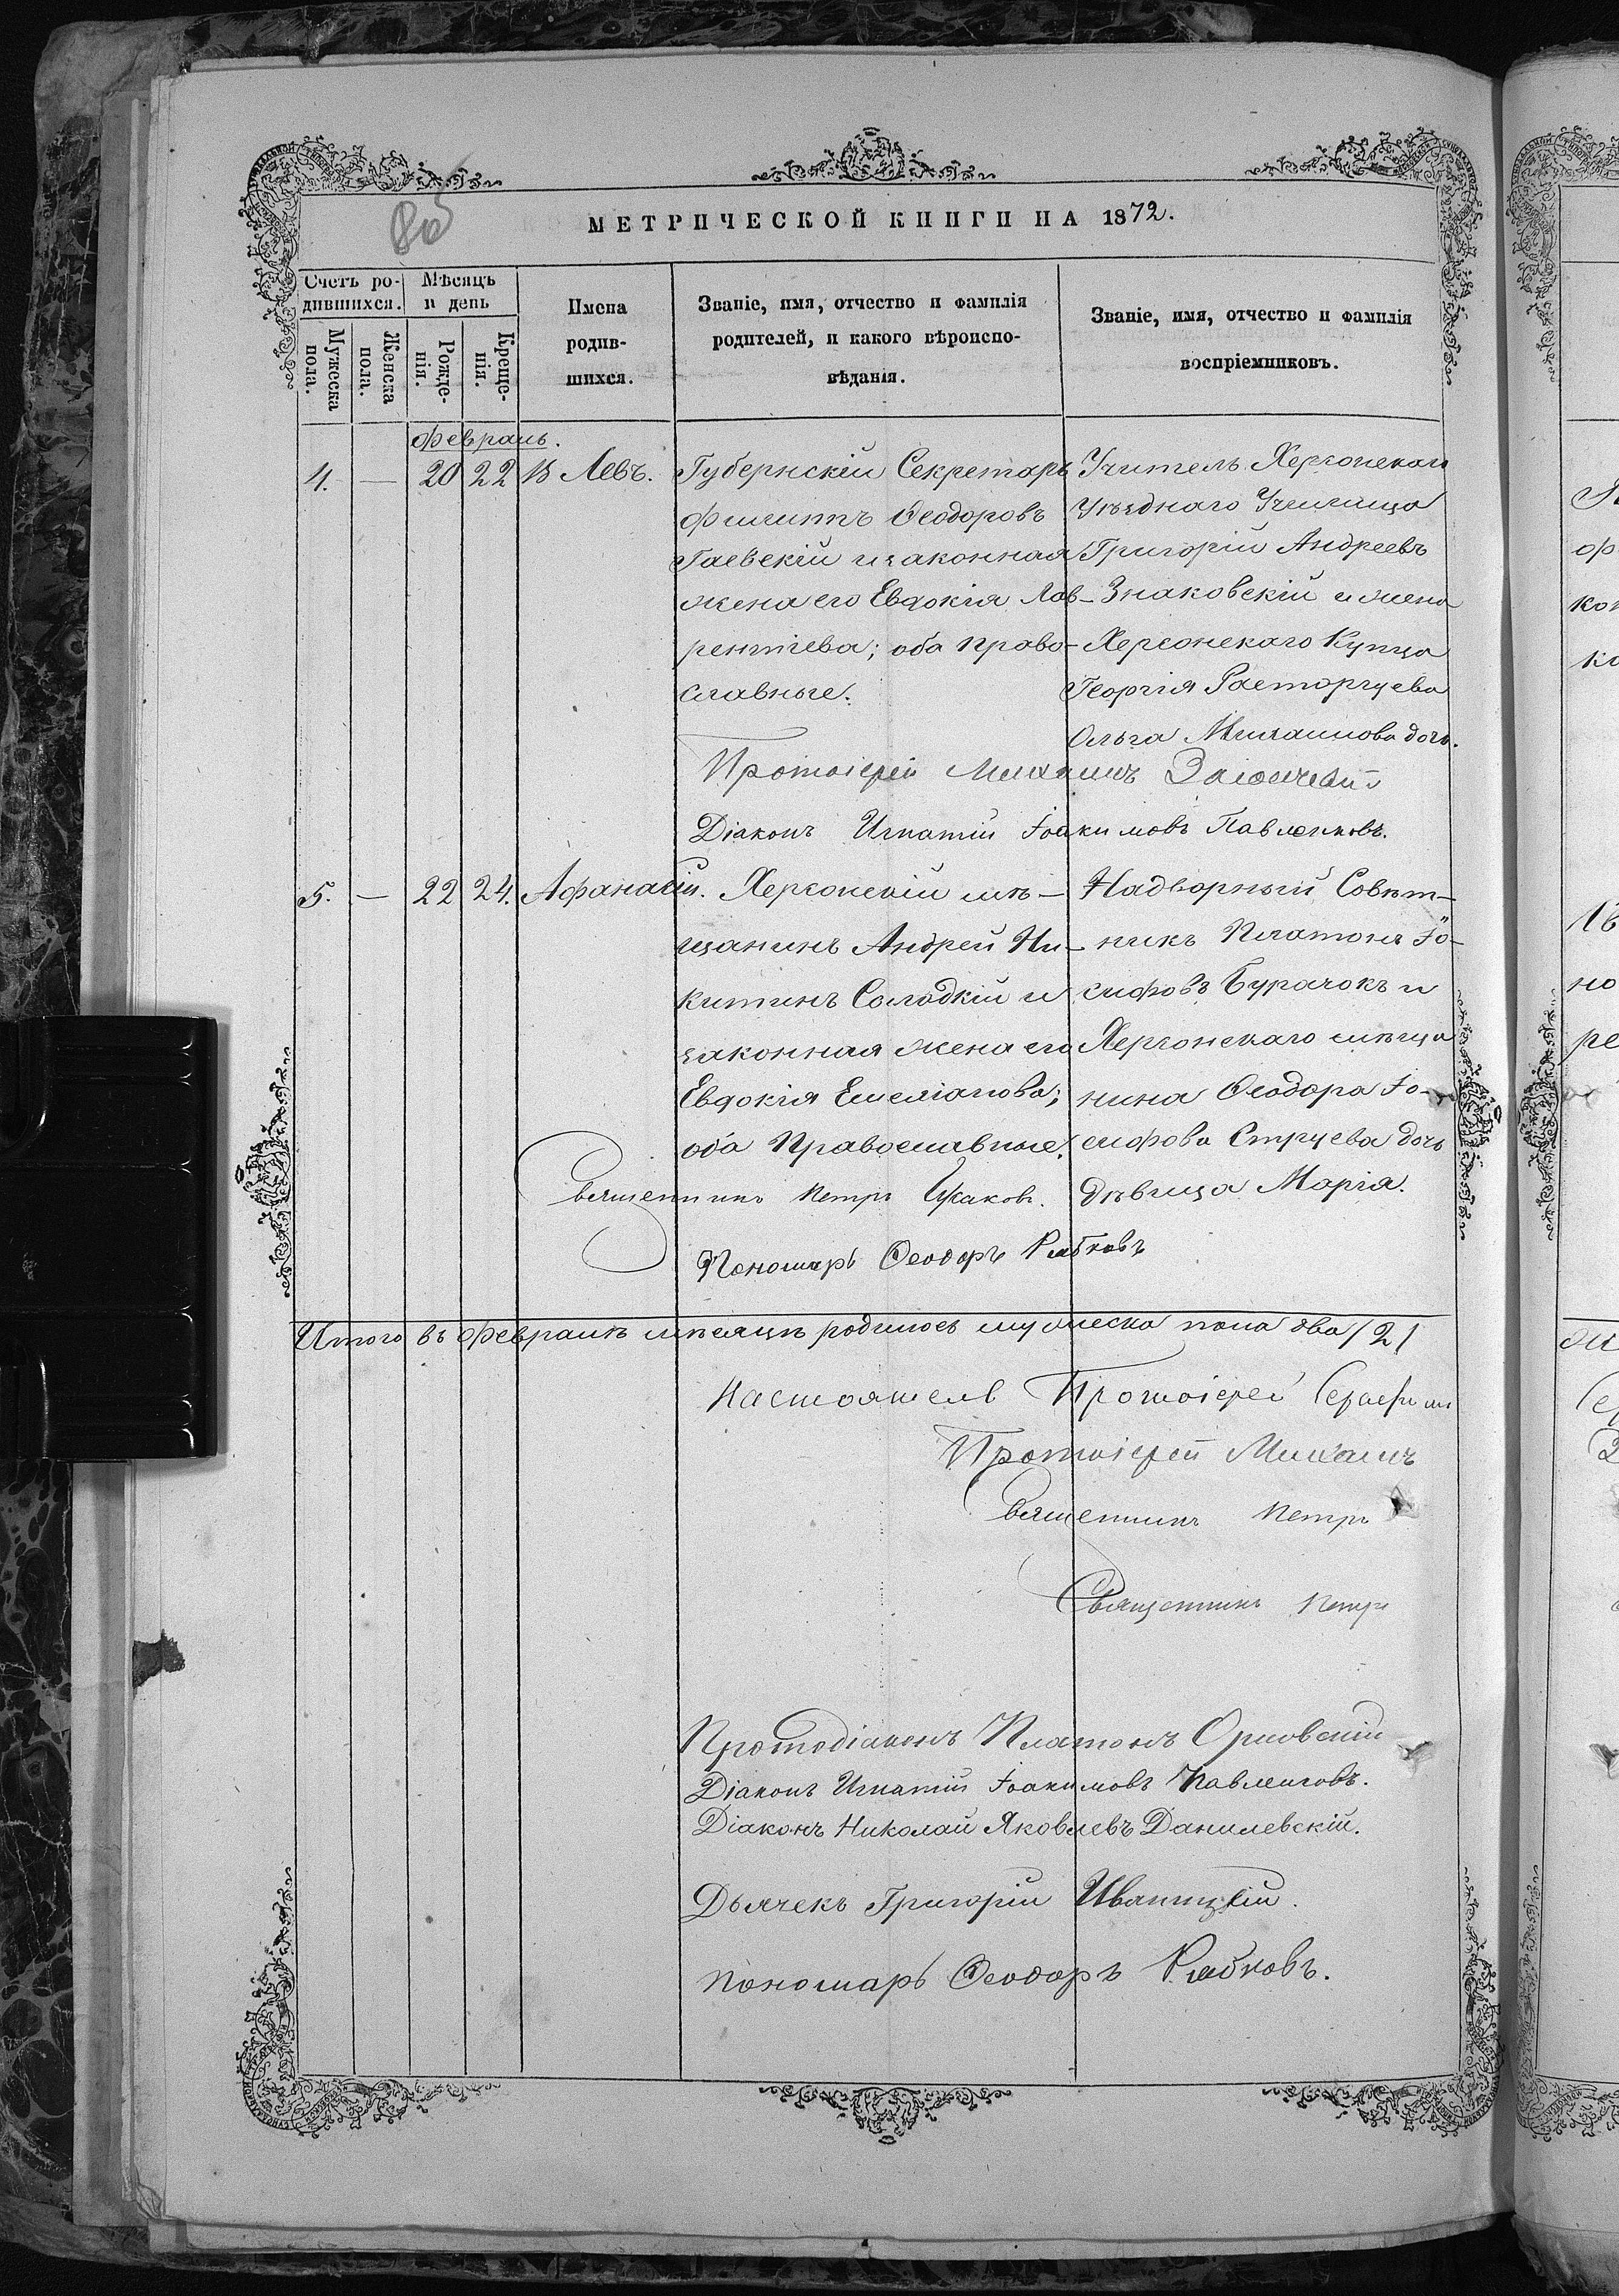 МЕТРИЧЕСКОЙ КНИГИ НА 1872.
Счетъ ро-
дившихся.
Мѣсяцъ
и день
Мужеска
пола.
Женска
пола.
Рожде-
нія.
Креще-
нія.
Имена
родив-
шихся.
Званіе, имя, отчество и фамилія
родителей, и какого вѣроиспо-
вѣданія.
Званіе, имя, отчество и фамилія
воспріемниковъ.
Февраль.
4. — 20 22 Левъ.
Губернскій Секретарь
Филиппъ Ѳеодоровъ
Гаевскій и законная
жена его Евдокія Лав-
рентіева; оба право-
славные.
Учитель Херсонскаго
Уѣзднаго Училища
Григорій Андреевъ
Знаковскій и жена
Херсонскаго Купца
Георгія Расторгуева
Ольга Михаилова дочь.
Протоіерей Михаилъ
Діаконъ Игнатій Іоакимовъ Павленковъ.
5. — 22 24. Афанасій.
Херсонскій мѣ-
щанинъ Андрей Ни-
китинъ Солодкій и
законная жена его
Евдокія Емеліанова;
оба Православные.
Надворный Совѣт-
никъ Платонъ Іо-
сифовъ Бурачокъ и
Херсонскаго мѣща
нина Ѳеодора Іо-
сифова Струева дочь
дѣвица Марія.
Священникъ Петръ
Пономарь Ѳеодоръ Рябковъ
Итого въ Февралѣ мѣсяцѣ родилось мужеска пола два /2/
Настоятель Протоіерей Серафим
Протоіерей Михаилъ
Священникъ Петръ
Священникъ Петръ
Протодіаконъ Платонъ Орловскій
Діаконъ Игнатій Іоакимовъ Павленковъ.
Діаконъ Николай Яковлевъ Данилевскій.
Дьячекъ Григорій Иваницкій.
Пономарь Ѳеодоръ Рябковъ.